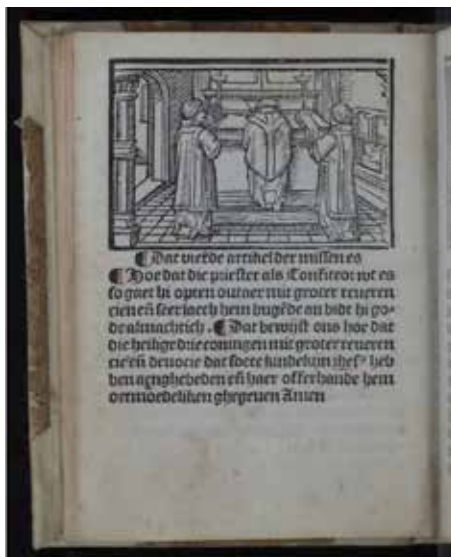 ¶ Dat vierde artikel der missen es
¶ Hoe dat die priester als Confiteor wt es
so gaet hi opten outaer mit groter reueren
cien eñ seer laech hem bugēde an bidt hi go-
de almachtich. ¶ Dat bewijst ons hoe dat
die heilige drie coningen mit groter reueren
cie eñ deuocie dat soete kindekijn ihesꝰ heb
ben aengebeden eñ haer offerhande hem
oetmoedeliken ghegeuen Amen